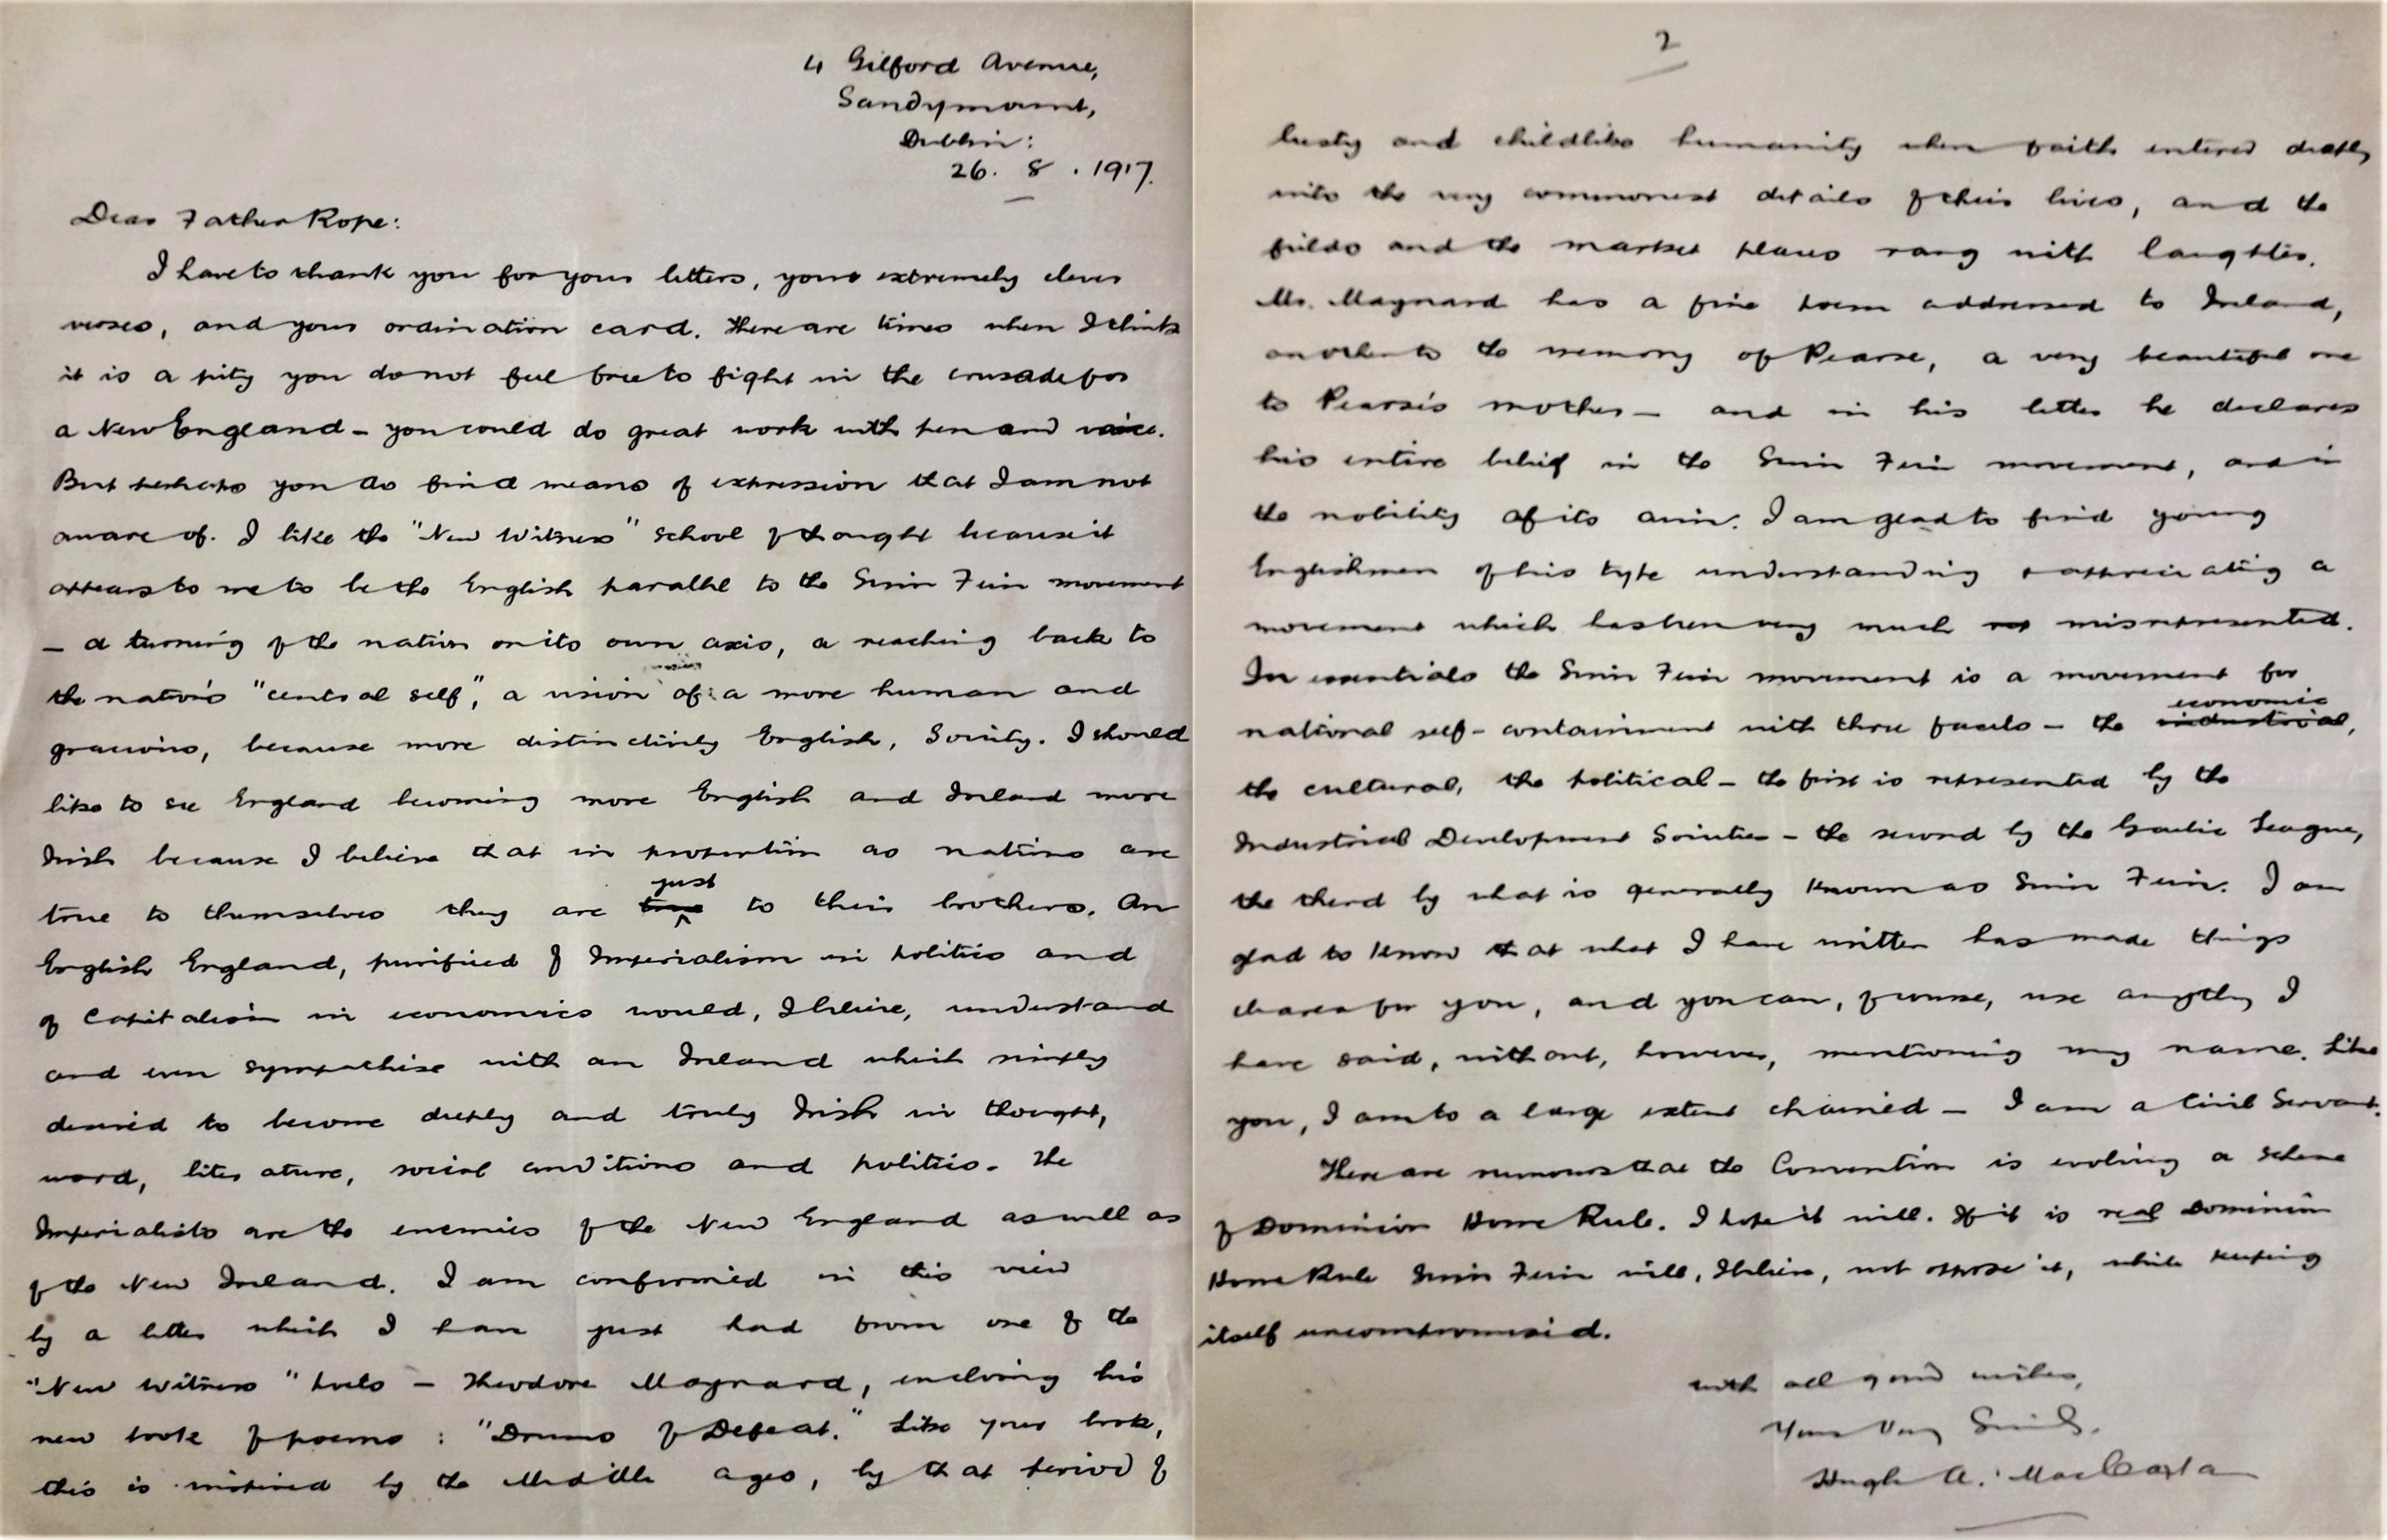 4 Gilford Avenue,
Sandymount,
Dublin:
26. 8. 1917.
Dear Father Rope:
I have to thank you for your letters, your extremely clever
verses, and your ordination card. There are times when I think
it is a pity you do not feel free to fight in the crusade for
a New England – you could do great work with pen and voice.
But perhaps you do find means of expression that I am not
aware of. I like the "New Witness" school of thought because it
appears to me to be the English parallel to the Sinn Fein movement
– a turning of the nation on its own axis, a reaching back to
the nation's "central self", a vision of a more human and
gracious, because more distinctively English, Society. I should
like to see England becoming more English and Ireland more
Irish because I believe that in proportion as nations are
true to themselves they are true just to their brothers. An
English England, purified of Imperialism in politics and
of Capitalism in economics would, I believe, understand
and even sympathise with an Ireland which simply
desired to become deeply and truly Irish in thought,
word, literature, social conditions and politics. The
Imperialists are the enemies of the New England as well as
of the New Ireland. I am confirmed in this view
by a letter which I have just had from one of the
"New Witness" poets – Theodore Maynard, enclosing his
new book of poems: "Drums of Defeat." Like your book,
this is inspired by the Middle ages, by that period of
2
lusty and childlike humanity when faith entered deeply
into the very commonest details of their lives, and the
fields and the market places rang with laughter.
Mr. Maynard has a fine poem addressed to Ireland,
another to the memory of Pearse, a very beautiful one
to Pearse's mother – and in his letter he declares
his entire belief in the Sinn Fein movement, and in
the nobility of its aim. I am glad to find young
Englishmen of his type understanding & appreciating a
movement which has been very much misrepresented.
In essentials the Sinn Fein movement is a movement for
national self-containment with three facets – the industrial economic,
the cultural, the political – the first is represented by the
Industrial Development Societies – the second by the Gaelic League,
the third by what is generally known as Sinn Fein. I am
glad to know that what I have written has made things
clearer for you, and you can, of course, use anything I
have said, without, however, mentioning my name. Like
you, I am to a large extent chained – I am a Civil Servant.
There are rumours that the Convention is evolving a scheme
of Dominion Home Rule. I hope it will. If it is real Dominion
Home Rule Sinn Fein will, I believe, not oppose it, while keeping
itself uncompromised.
with all good wishes,
Yours Very Sincly.
Hugh A. MacCartan